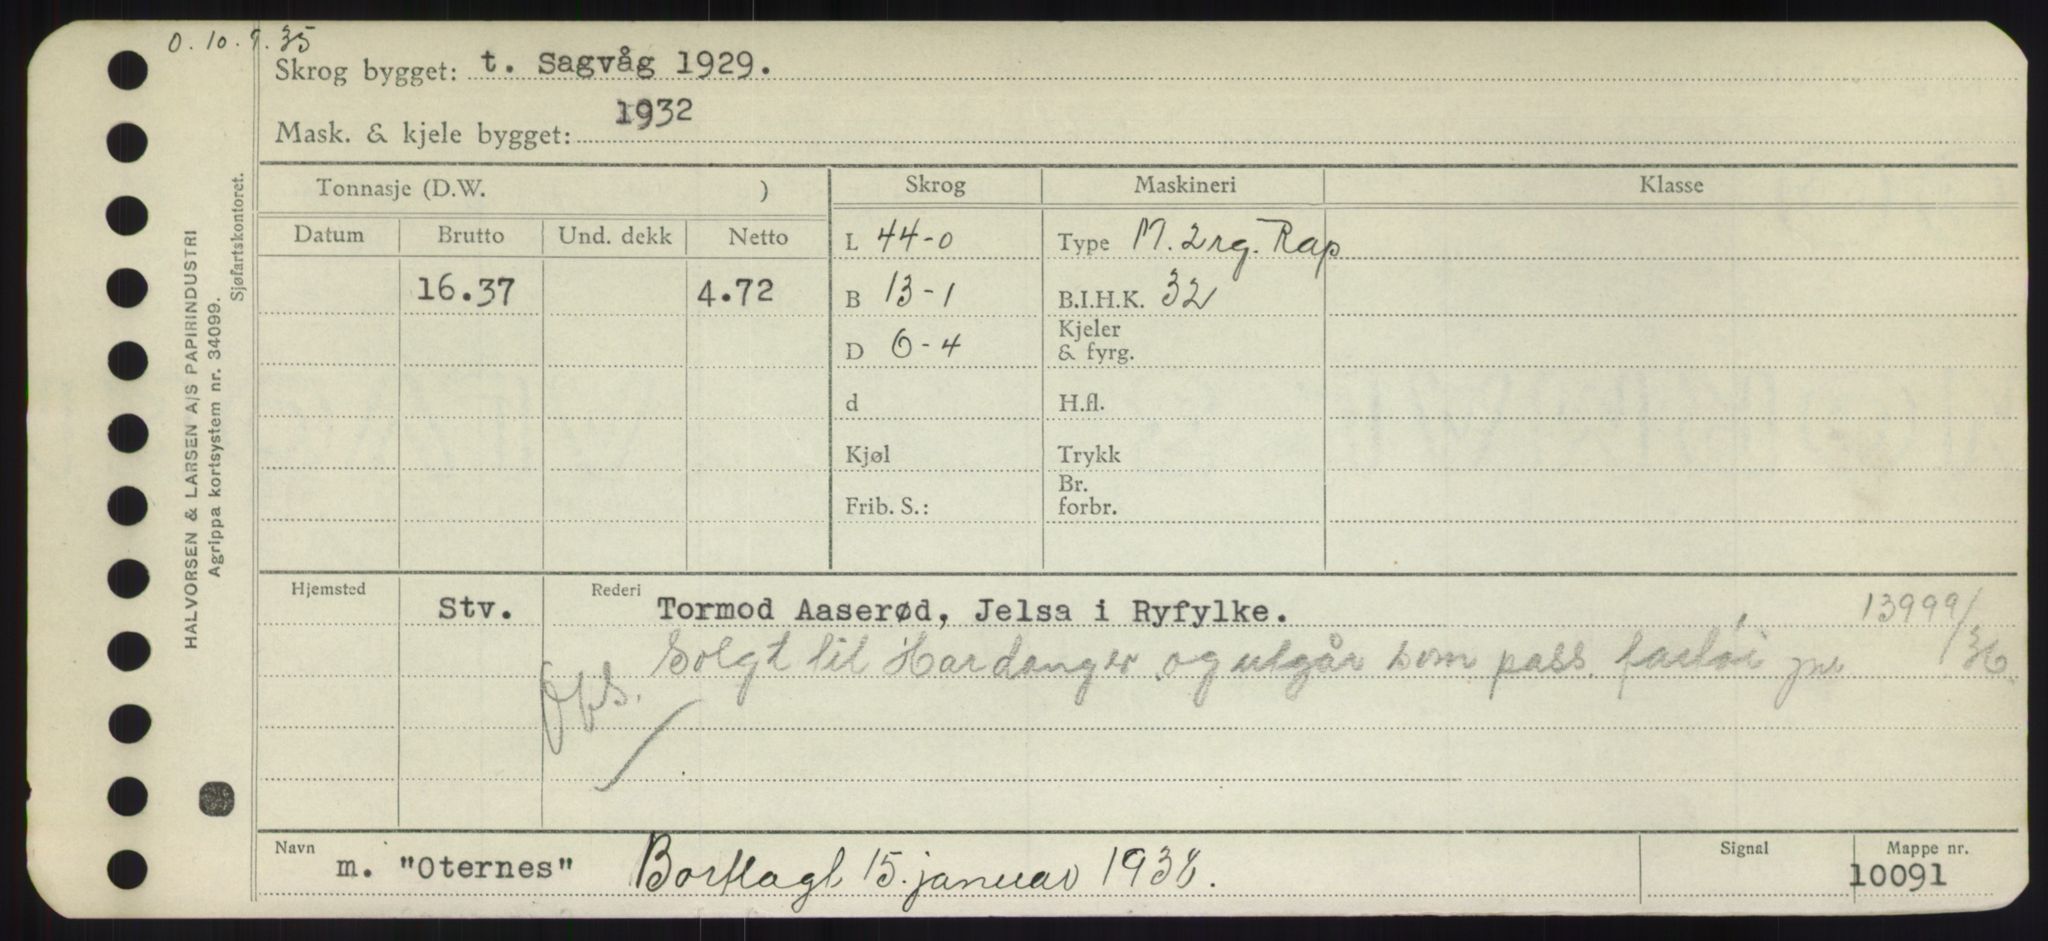 O. 10. 9. 35
Skrog bygget: t. Sagvåg 1929.
Mask. & kjele bygget: 1932
Tonnasje (D.W. )
Skrog Maskineri Klasse
Datum Brutto Und. dekk Netto
L 44-0 Type M. 2rg. Rap
16.37 4.72
B 13-1 B.I.H.K. 32
D 6-4 Kjeler & fyrg.
d H.fl.
Kjøl Trykk
Frib. S.: Br. forbr.
Hjemsted Stv. Rederi Tormod Aaserød, Jelsa i Ryfylke. 13999/36.
Solgt til Hardanger og utgår som pass. fartøi
Navn m. "Oternes" Bortlagt 15. januar 1938. Signal Mappe nr. 10091
HALVORSEN & LARSEN A/S PAPIRINDUSTRI
Agrippa kortsystem nr. 34099.
Sjøfartskontoret.